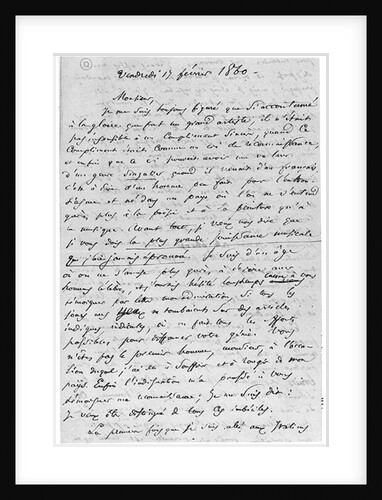 Vendredi 17 février 1860 -
Monsieur,
Je me suis toujours figuré que si accoutumé
à la gloire que fut un grand artiste, il n'était
pas insensible à un compliment sincère, quand ce
compliment était comme un cri de reconnaissance,
et enfin que ce cri pouvait avoir une valeur
d'un genre singulier quand il venait d'un français,
c'est à dire d'un homme peu fait pour l'enthou-
siasme et né dans un pays où l'on ne s'entend
guères plus à la poésie et à la peinture qu'à
la musique. Avant tout, je veux vous dire que
je vous dois la plus grande jouissance musicale
que j'aie jamais éprouvée. Je suis d'un âge
où on ne s'amuse plus guères à écrire aux
hommes célèbres, et j'aurais hésité longtemps encore à vous
témoigner par lettre mon admiration, si tous les
jours mes yeux ne tombaient sur des articles
indignes, ridicules, où on fait tous les efforts
possibles pour diffamer votre génie. Vous
n'êtes pas le premier homme, monsieur, à l'occa-
sion duquel j'ai eu à souffrir et à rougir de mon
pays. Enfin l'indignation m'a poussé à vous
témoigner ma reconnaissance; je me suis dit:
je veux être distingué de tous ces imbéciles.
La première fois que je suis allé aux Italiens